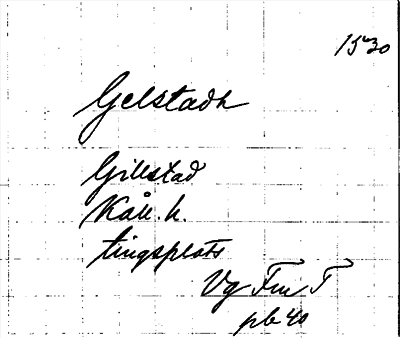 1530
Gelstadh
Gillstad
Kåll. h.
tingsplats
Vg Fm T
pb 40